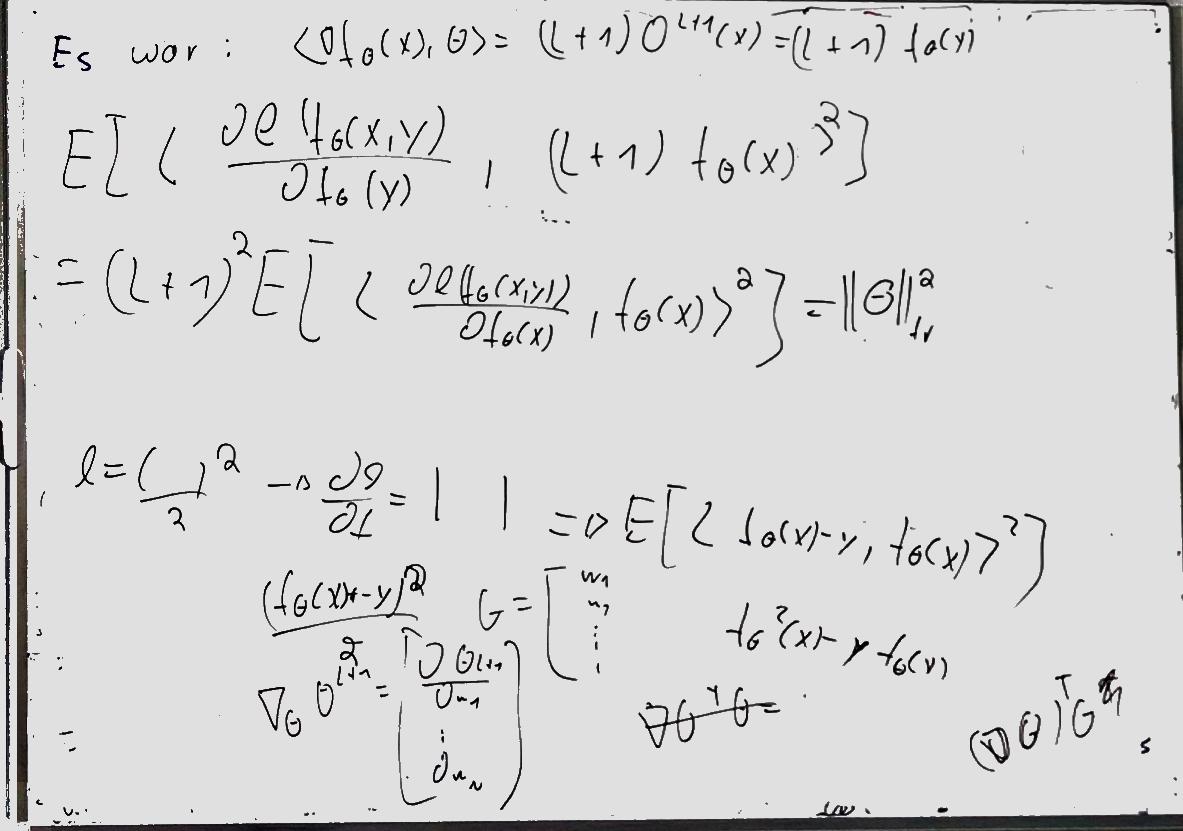 Es war : <∇f_θ(x), θ> = (L+1) O^{L+1}(x) = (L+1) f_θ(x)
E[ < ∂l(f_θ(x,y) / ∂f_θ(y) , (L+1) f_θ(x) >^2 ]
= (L+1)^2 E[ < ∂l(f_θ(x,y)) / ∂f_θ(x) , f_θ(x) >^2 ] = ||θ||^2_{fr}
l = ( )^2 / 2 → ∂l / ∂f = | | => E[ < f_θ(x)-y, f_θ(x) >^2 ]
(f_θ(x)-y)^2 / 2
θ = [ w_1
f_θ^2(x) - y f_θ(x)
∇_θ O^{L+1} = [ ∂O^{L+1} / ∂w_1 ⋮ ∂w_N ]
(∇θ)^T θ